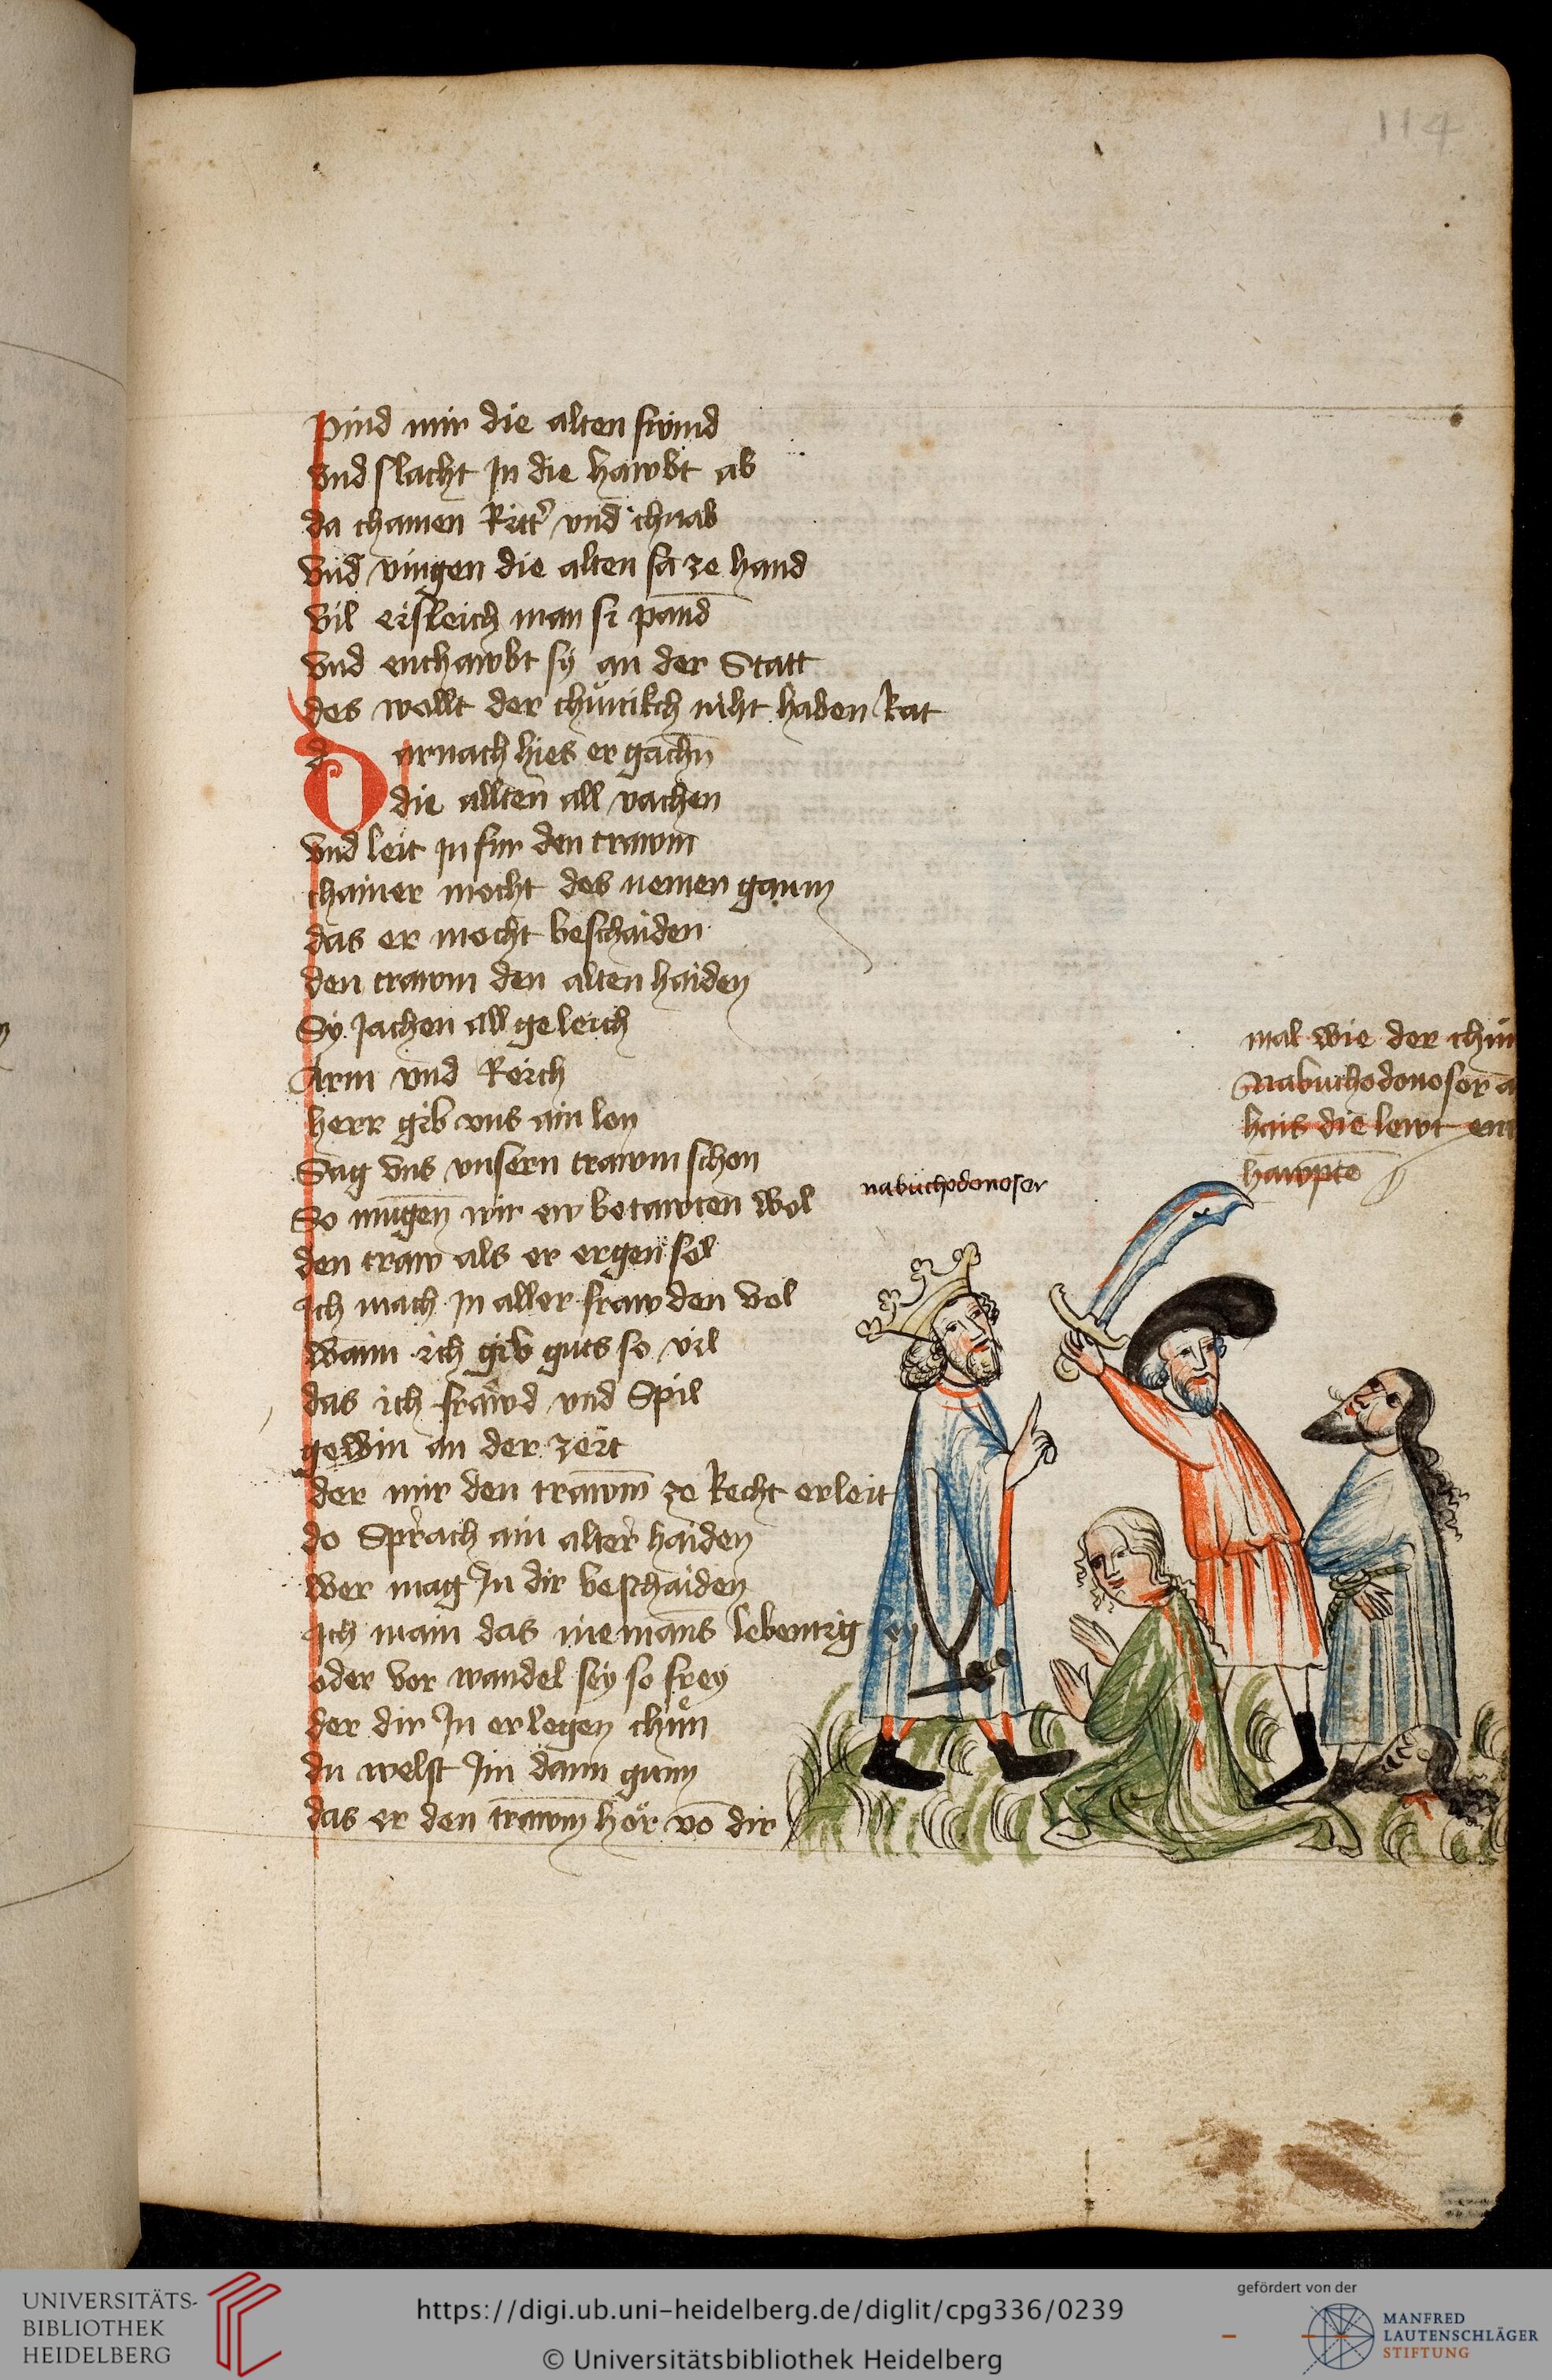 114
pind mir die alten swind
vnd slacht In die hawbt ab
da chamen Ritt' vnd chnab
vnd vingen die alten sa ze hand
vil eisleich man si pand
vnd enthawbt sy an der Statt
des wollt der chunikch niht haben Rat
d arnach hies er gachn
die allten all vachen
vnd leit In fur den trawm
chainer mocht des nemen gaum
das er mocht beschaiden
den trawm den alten haiden
Sy Jachen all geleich
Arm vnd Reich
herr gib vns ain lon
Sag vns vnsern trawm schon
So mugen wir ew betawten wol
den traw als er ergen sol
Ich mach In aller frawden vol
wann ich gib guts so vil
das ich frawd vnd Spil
gewin an der zeit
der mir den trawm ze Recht erleit
do Sprach ain alter haiden
wer mag In dir beschaiden
Ich main das niemans lebentig sey
oder vor wandel sey so frey
der dir In erlegen chun
du welst Im dann gunn
das er den trawm hör vo dir
mal wie der chun
Nabuchodonosor a
hais die lewt ent
hawpte
nabuchodonoser
UNIVERSITÄTS-
BIBLIOTHEK
HEIDELBERG
https://digi.ub.uni-heidelberg.de/diglit/cpg336/0239
© Universitätsbibliothek Heidelberg
gefördert von der
MANFRED
LAUTENSCHLÄGER
STIFTUNG